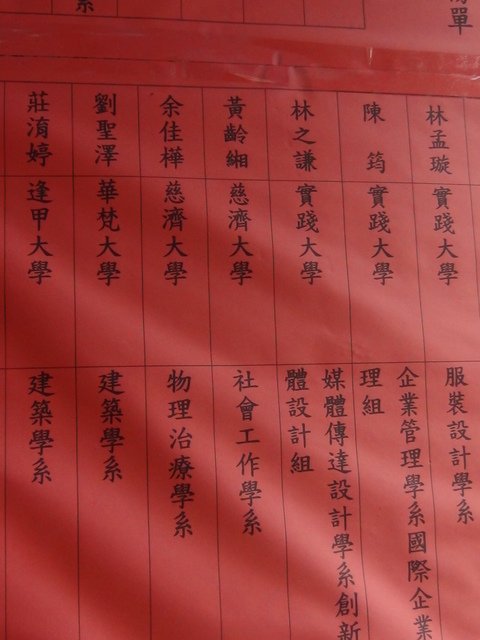 單
系
林孟璇
實踐大學
服裝設計學系
陳筠
實踐大學
企業管理學系國際企業
理組
林之謙
實踐大學
媒體傳達設計學系創新
體設計組
黃齡緗
慈濟大學
社會工作學系
余佳樺
慈濟大學
物理治療學系
劉聖澤
華梵大學
建築學系
莊淯婷
逢甲大學
建築學系